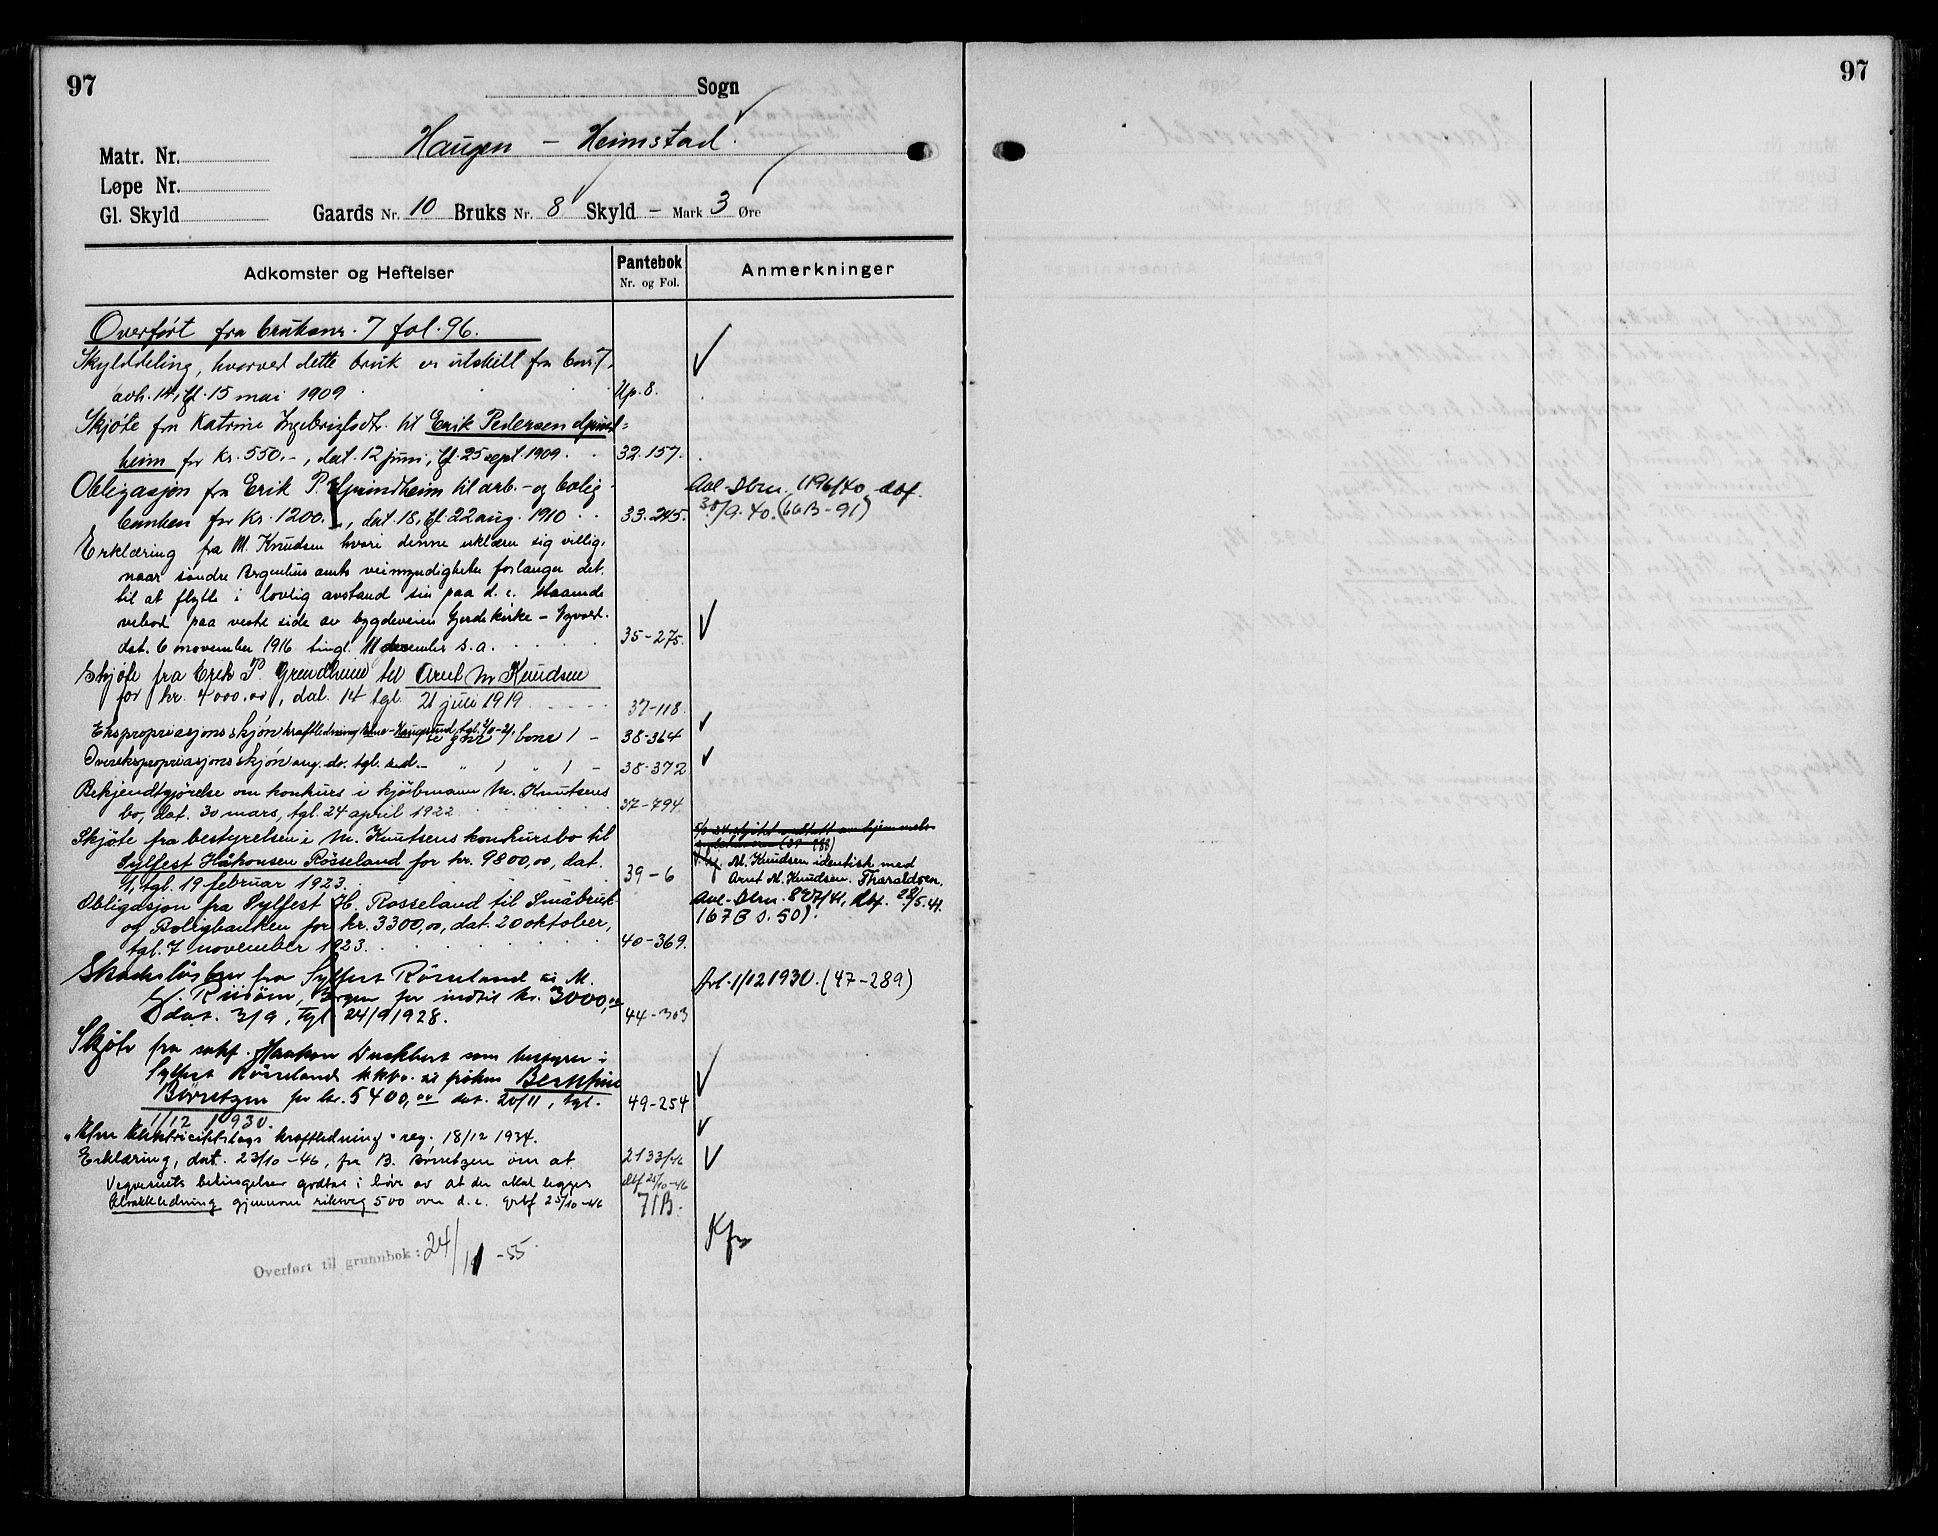 97
Sogn
Haugen - Heimstad.
Matr. Nr.
Løpe Nr.
Gl. Skyld
Gaards Nr. 10 Bruks Nr. 8 Skyld - Mark 3 Øre
Adkomster og Heftelser
Pantebok
Nr. og Fol.
Anmerkninger
Overført fra bruksnr. 7 fol. 96.
Skylddeling, hvorved dette bruk er utskilt fra bnr. 7,
avh. 14, tgl. 15 mai 1909 Up. 8.
Skjøte fra Katrine Ingebrigtsdtr. til Erik Pedersen
heim for kr. 550.-, dat. 12 juni, tgl. 25 sept. 1909. 32.157.
Obligasjon fra Erik P. Grindheim til arb.- og bolig
banken for kr. 1200.-, dat. 18, tgl. 22 aug. 1910 33.245.
Avl. Dbnr. 1196/40, dbf.
30/9.40. (66B-91)
Erklæring fra M. Knudsen hvori denne erklærer sig villig,
naar søndre Bergenhus amts veimyndigheter forlanger det
til at flytte i lovlig avstand sin paa d. e. staaende
nebod paa vestre side av bygdeveien Gjerde kirke -
dat. 6 november 1916 tingl. 11 december s. a. 35-275.
Skjøte fra Erik P. Grindheim til Arnt M Knudsen
for kr. 4000,00, dat. 14 tgl. 21 juli 1919 37-118.
Ekspropriasjonsskjøn kraftledning - Haugesund, tgl. 38-364
Overekspropriasjonsskjøn ang. do. tgl. s.d. - 38-372
Bekjendtgjørelse om konkurs i kjøbmann M. Knutsens
bo, dat. 30 mars, tgl. 24 april 1922 37-794.
Skjøte fra bestyrelsen i M. Knutsens konkursbo til
Sylfest Håkonsen Rösseland for kr. 9800,00, dat.
tgl. 19 februar 1923. 39-6
M. Knudsen identisk med
Arnt M. Knudsen. Tharaldsen.
Obligasjon fra Sylfest H. Rosseland til Småbruk
og Boligbanken for kr. 3300,00, dat. 20 oktober,
tgl. 7 november 1923. 40-369.
Avl. Dbnr. 827/41, dbf. 28/5.41.
(67B s. 50).
Skadesløsbrev fra Sylfest Rösseland til M.
G. Riisöen, Bergen for indtil kr. 3000,00
dat. 3/9, tgl. 24/9 1928. 44-303
Avl. 1/12 1930. (47-289)
Skjøte fra sakf. Haakon som bestyrer i
Sylfest Rösselands kkbo. til frøken
Börretzen for kr. 5400,00 dat. 20/11, tgl.
1/12 1930. 49-254
"Elm Elektricitetslags kraftledning" reg. 18/12 1934.
Erklæring, dat. 23/10-46, fra B. Börretzen om at
Vegvesenets betingelser godtas i høve av at der skal legges
gjennom riksveg 500 over d. e. dbf 25/10-46
2133/46
dbf 25/10-46
71B.
Overført til grunnbok: 24/11-55.
97